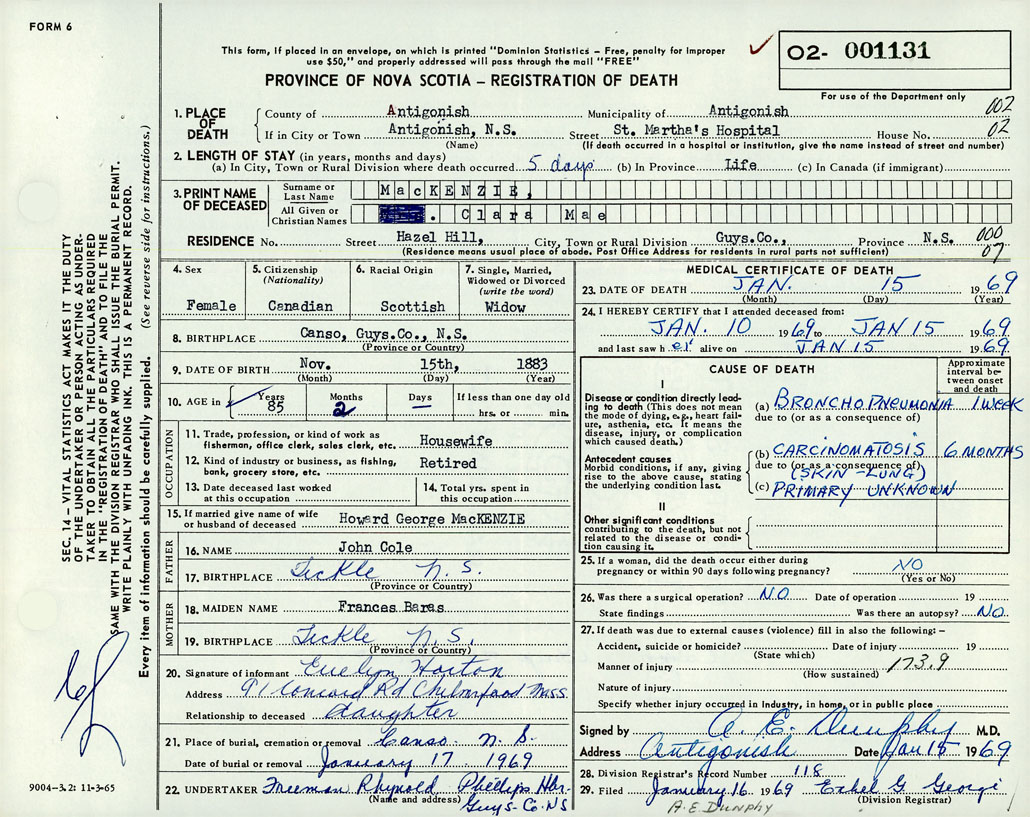 FORM 6
This form, if placed in an envelope, on which is printed "Dominion Statistics – Free, penalty for improper
use $50," and properly addressed will pass through the mail "FREE"
PROVINCE OF NOVA SCOTIA – REGISTRATION OF DEATH
O2- 001131
For use of the Department only
1. PLACE OF DEATH
County of Antigonish Municipality of Antigonish 002
If in City or Town Antigonish, N.S. Street St. Martha's Hospital House No. 02
(Name) (If death occurred in a hospital or institution, give the name instead of street and number)
2. LENGTH OF STAY (in years, months and days)
(a) In City, Town or Rural Division where death occurred 5 days (b) In Province Life (c) In Canada (if immigrant)
3. PRINT NAME OF DECEASED
Surname or Last Name MacKENZIE,
All Given or Christian Names . Clara Mae
RESIDENCE No. Street Hazel Hill, City, Town or Rural Division Guys.Co., Province N.S. 000
(Residence means usual place of abode. Post Office Address for residents in rural parts not sufficient) 07
4. Sex
Female
5. Citizenship
(Nationality)
Canadian
6. Racial Origin
Scottish
7. Single, Married,
Widowed or Divorced
(write the word)
Widow
8. BIRTHPLACE Canso, Guys.Co., N.S.
(Province or Country)
9. DATE OF BIRTH Nov. 15th, 1883
(Month) (Day) (Year)
10. AGE in Years Months Days If less than one day old
85 2 — hrs. or min.
OCCUPATION
11. Trade, profession, or kind of work as
fisherman, office clerk, sales clerk, etc. Housewife
12. Kind of industry or business, as fishing,
bank, grocery store, etc. Retired
13. Date deceased last worked
at this occupation
14. Total yrs. spent in
this occupation
15. If married give name of wife
or husband of deceased Howard George MacKENZIE
FATHER
16. NAME John Cole
17. BIRTHPLACE Tickle N.S.
(Province or Country)
MOTHER
18. MAIDEN NAME Frances Baras
19. BIRTHPLACE Tickle N.S.
(Province or Country)
20. Signature of informant Evelyn Horton
Address 91 Concord Rd Chelmsford Mass
Relationship to deceased daughter
21. Place of burial, cremation or removal Canso N.S.
Date of burial or removal January 17 1969
22. UNDERTAKER Freeman Rhynold Phillips Hbr.
(Name and address) Guys-Co. NS
MEDICAL CERTIFICATE OF DEATH
23. DATE OF DEATH JAN. 15 1969
(Month) (Day) (Year)
24. I HEREBY CERTIFY that I attended deceased from:
JAN. 10 1969 to JAN 15 1969
and last saw h er alive on JAN 15 1969
CAUSE OF DEATH
Approximate
interval be-
tween onset
and death
I
Disease or condition directly lead-
ing to death (This does not mean
the mode of dying, e.g., heart fail-
ure, asthenia, etc. It means the
disease, injury, or complication
which caused death.)
(a) BRONCHOPNEUMONIA 1 WEEK
due to (or as a consequence of)
Antecedent causes
Morbid conditions, if any, giving
rise to the above cause, stating
the underlying condition last.
(b) CARCINOMATOSIS 6 MONTHS
due to (or as a consequence of)
(SKIN-LUNG)
(c) PRIMARY UNKNOWN
II
Other significant conditions
contributing to the death, but not
related to the disease or condi-
tion causing it.
25. If a woman, did the death occur either during
pregnancy or within 90 days following pregnancy? NO
(Yes or No)
26. Was there a surgical operation? NO Date of operation 19
State findings Was there an autopsy? NO
27. If death was due to external causes (violence) fill in also the following: –
Accident, suicide or homicide? Date of injury 19
(State which)
Manner of injury 173.9
(How sustained)
Nature of injury
Specify whether injury occurred in industry, in home, or in public place
Signed by A. E. Dunphy M.D.
Address Antigonish Date Jan 15 1969
28. Division Registrar's Record Number 118
29. Filed January 16 1969 Ethel G George
A.E. DUNPHY (Division Registrar)
SEC. 14 – VITAL STATISTICS ACT MAKES IT THE DUTY
OF THE UNDERTAKER OR PERSON ACTING AS UNDER-
TAKER TO OBTAIN ALL THE PARTICULARS REQUIRED
IN THE "REGISTRATION OF DEATH" AND TO FILE THE
SAME WITH THE DIVISION REGISTRAR WHO SHALL ISSUE THE BURIAL PERMIT.
WRITE PLAINLY WITH UNFADING INK. THIS IS A PERMANENT RECORD.
Every item of information should be carefully supplied. (See reverse side for instructions.)
9004-3.2: 11-3-65